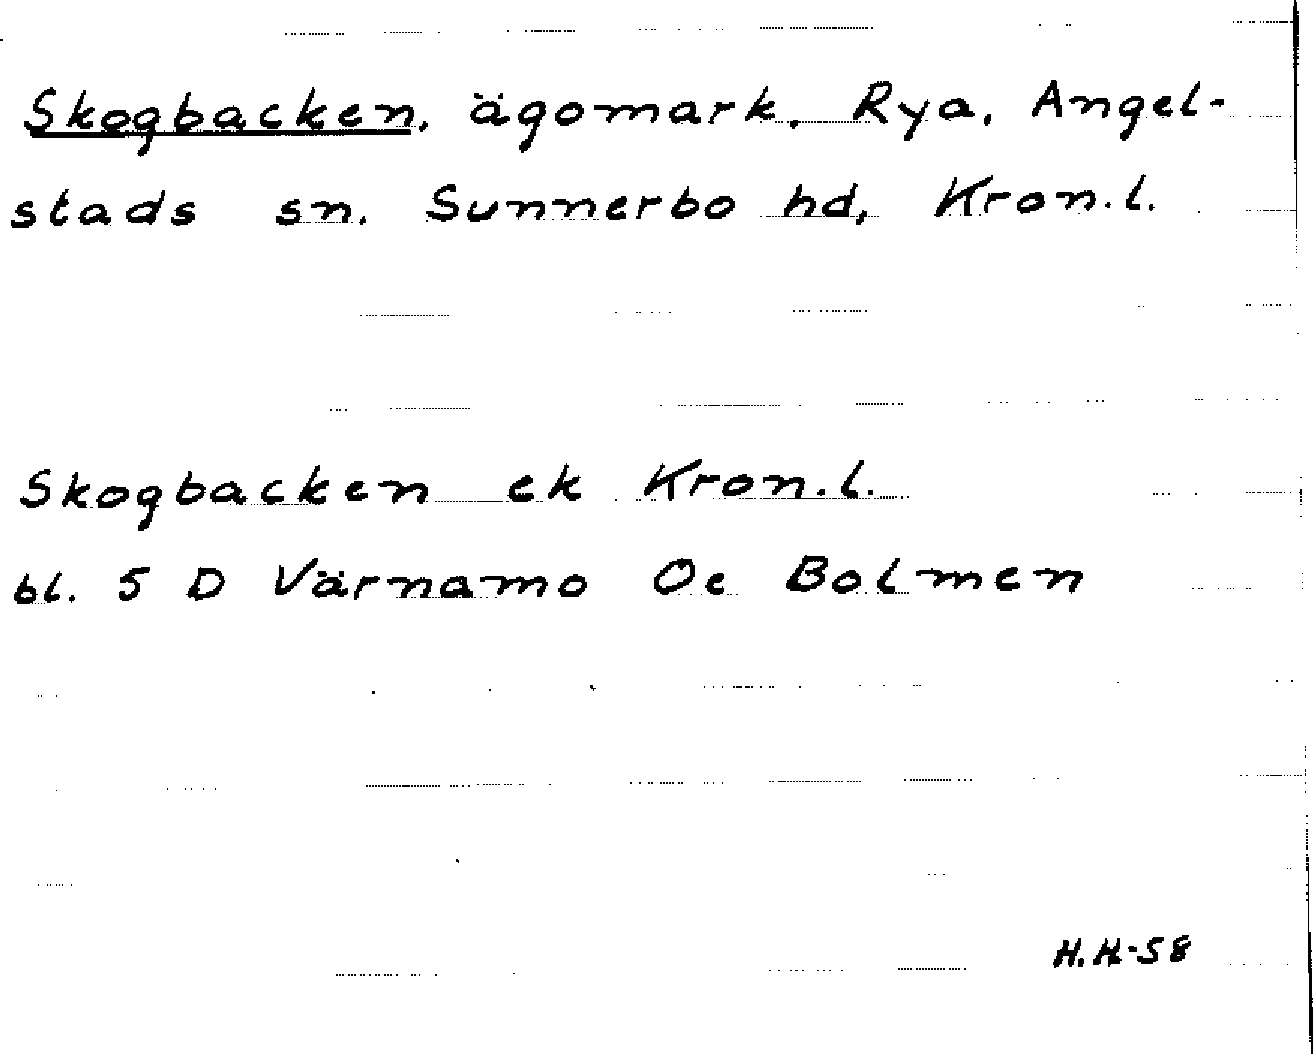 Skogbacken, ägomark, Rya, Angel-
stads sn. Sunnerbo hd, Kron.l.
Skogbacken ek Kron.l.
bl. 5 D Värnamo Oe Bolmen
H.H-58